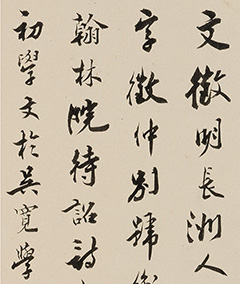 文徵明長洲人
字徵仲別號衡
翰林院待詔詩
初學文於吳寬學